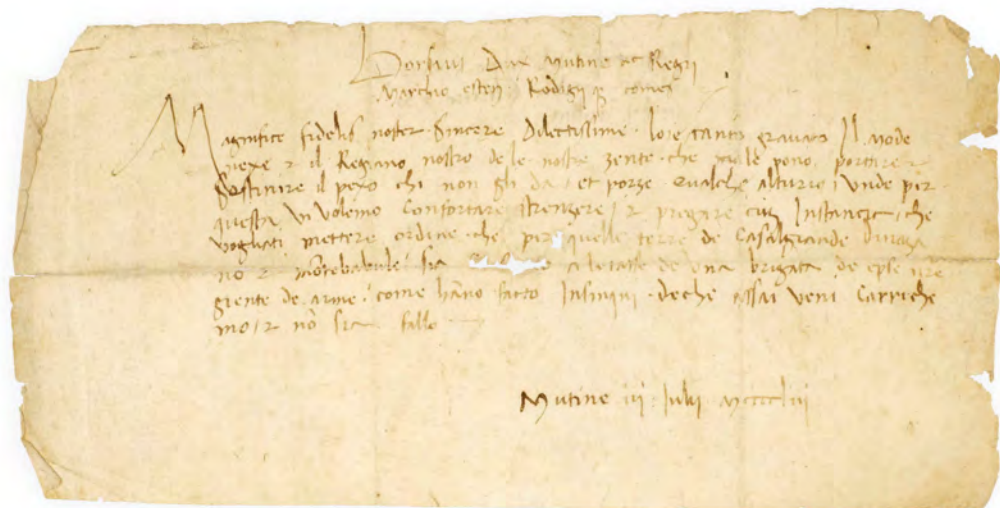 Borsius Dux Mutine et Regij
Marchio estensis Rodigij comes
Magnifice fidelis noster sincere dilectissime. lo e tanto gravato Il Mode
nexe et il Regiano nostro de le nostre zente che male pono portare et
sostinire il pexo chi non gli da et porze qualche alturio, Unde per
questa vi volemo confortare strengere et pregare cum Instancia che
vogliati mettere ordine che per quelle terre de Casalgrande Dinaza
no et Montebabule sia a le tasse de una brigata de epse nre
giente de arme, come hano facto Insinqui. de che assai veni carriche
mo, et nō sia fallo
Mutine iii Julij Mccccliii